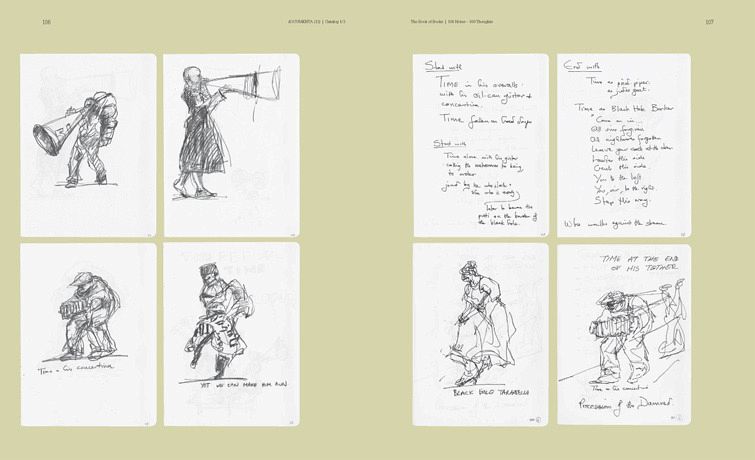 106
dOCUMENTA (13) | Catalog 1/3
The Book of Books | 100 Notes – 100 Thoughts
107
Start with
TIME in his overalls
with his oil-can guitar &
concertina.
Time
Start with
Time alone with his guitar
calling the
to order
joined by the
later to become the
on the border of
the black hole.
End with
Time as pied piper.
as judas goat.
Time as Black Hole Barker
"Come on in...
All sins forgiven
All nightmares forgotten
Leave your coat at the door
this side
this side.
You to the left
You, sir, to the right.
Step this way.
Who walks against the stream
Time & his concertina
YET WE CAN MAKE HIM RUN
BLACK HOLE TARANTELLA
TIME AT THE END
OF HIS TETHER
Time & his concertina
Procession of the Damned.